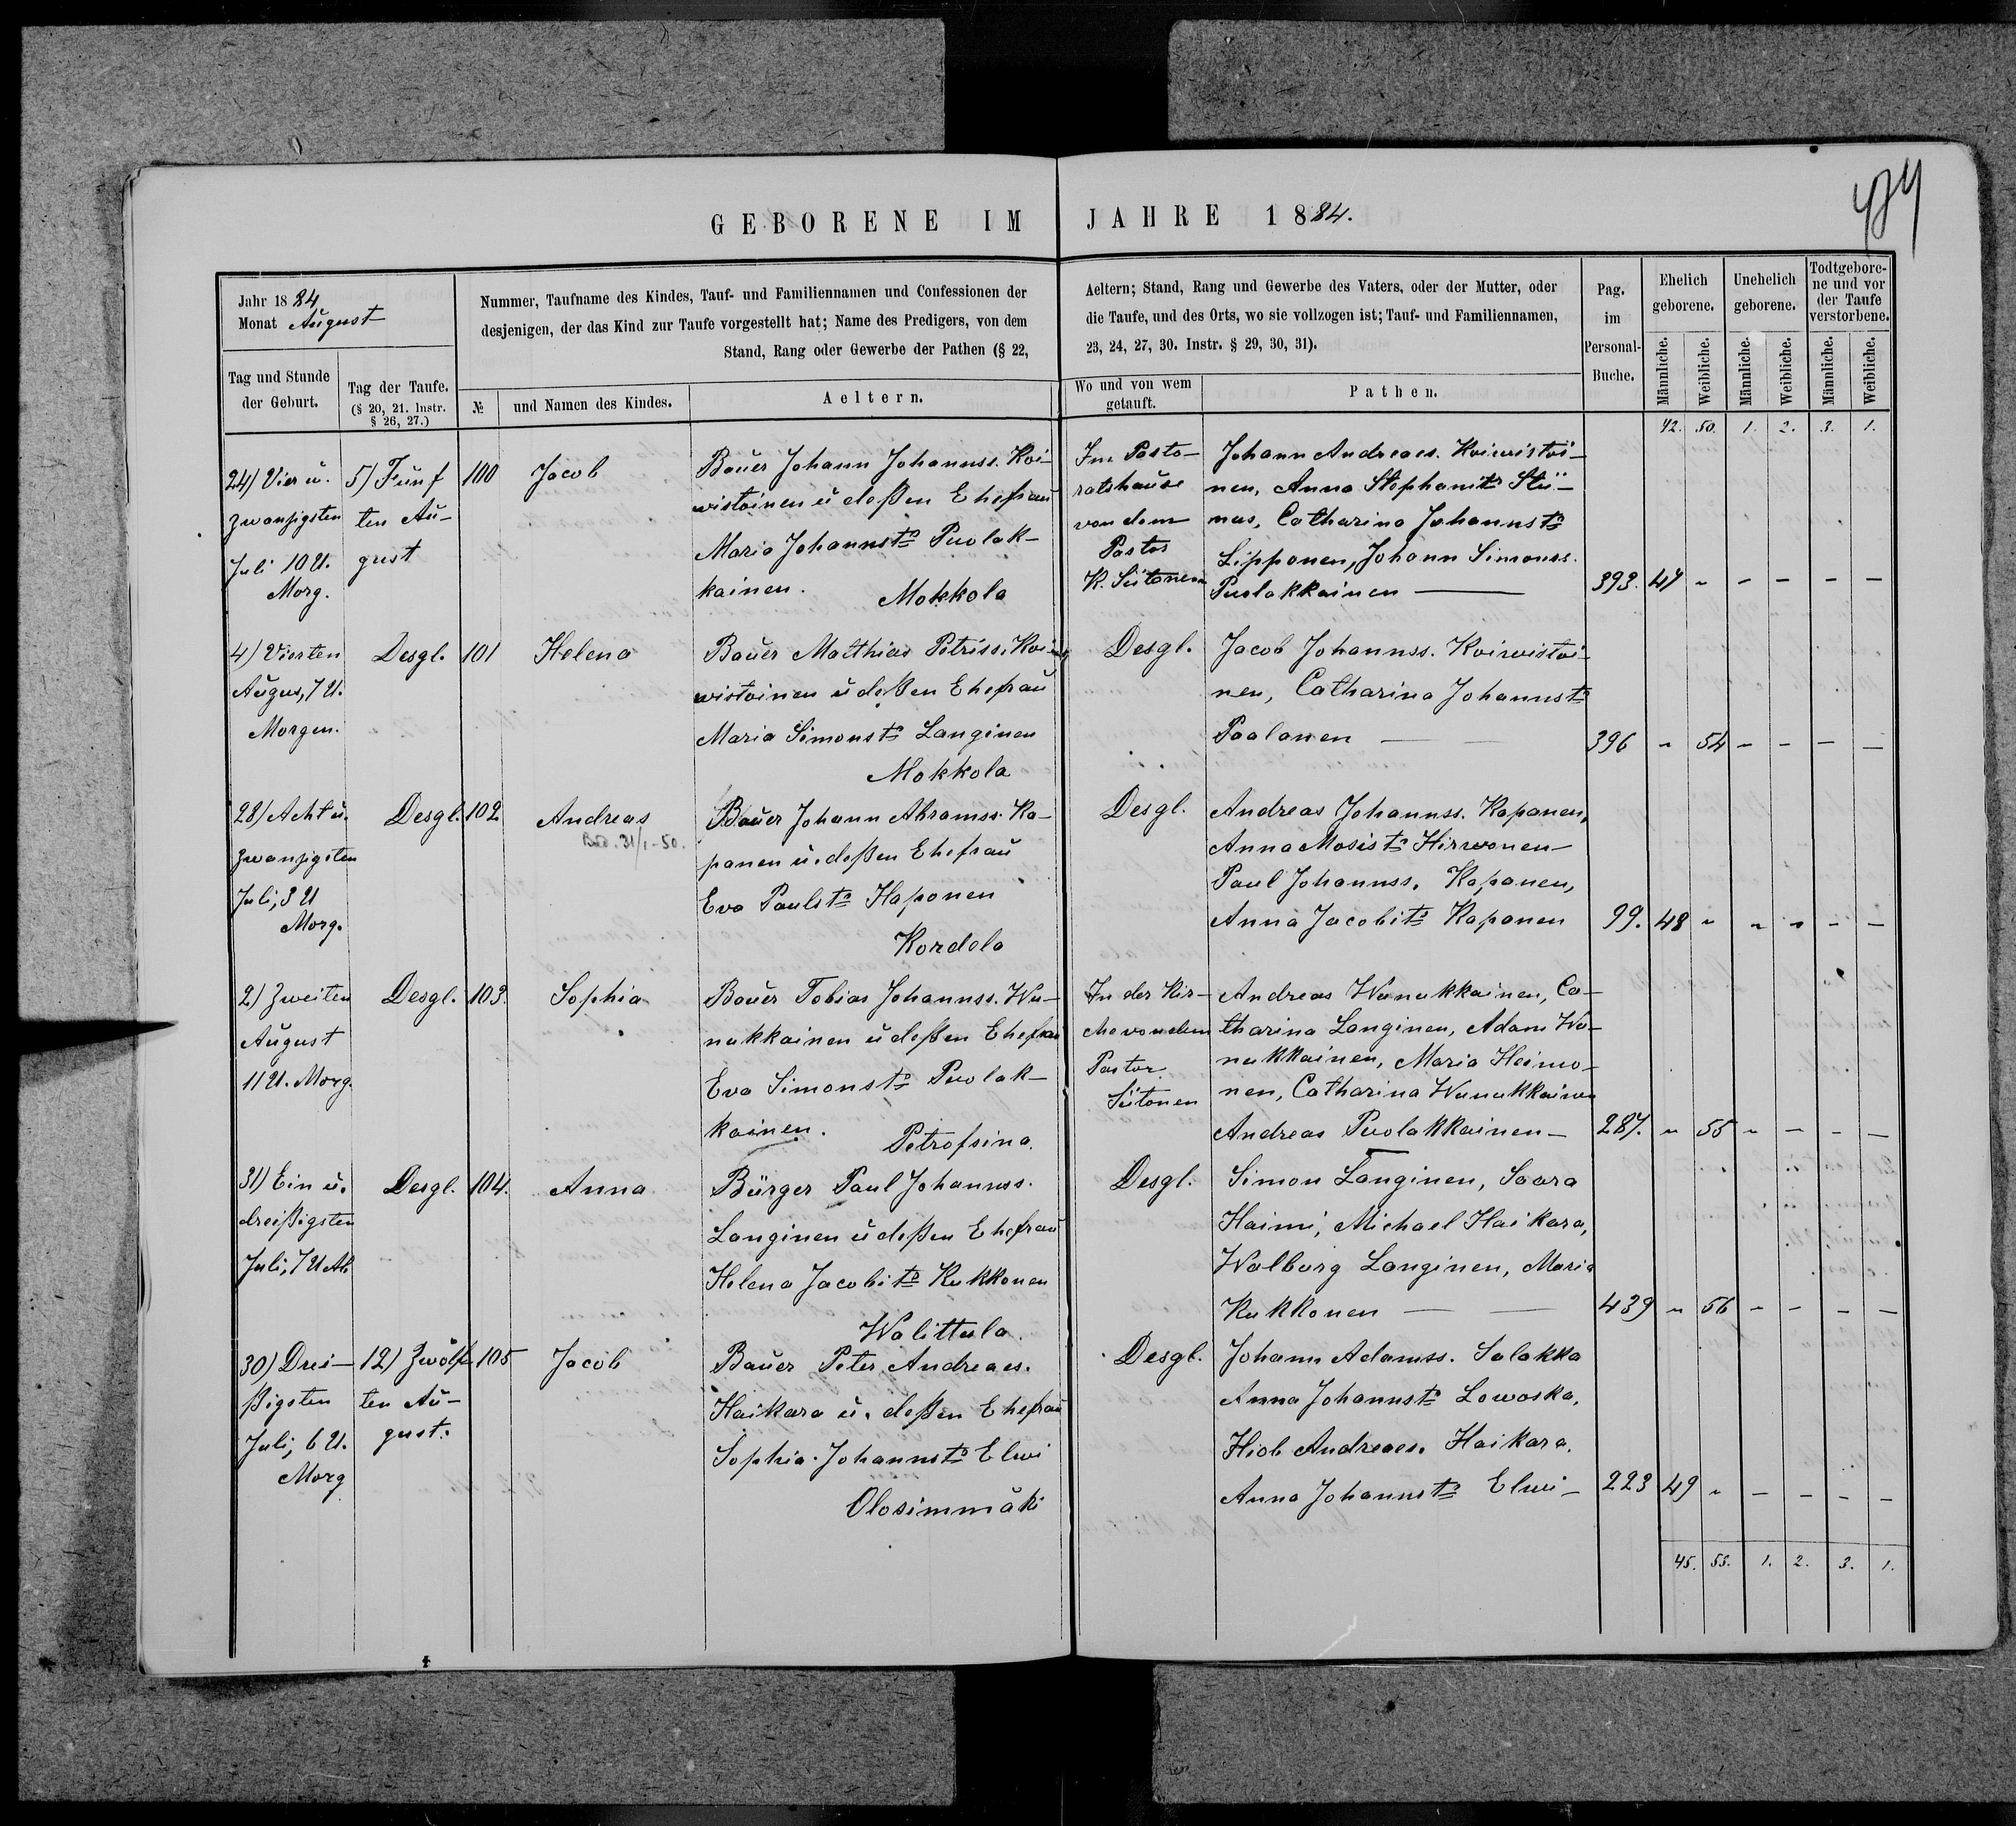 484
GEBORENE IM JAHRE 1884.
Jahr 1884
Monat August
Nummer, Taufname des Kindes, Tauf- und Familiennamen und Confessionen der
desjenigen, der das Kind zur Taufe vorgestellt hat; Name des Predigers, von dem
Stand, Rang oder Gewerbe der Pathen (§ 22,
Aeltern; Stand, Rang und Gewerbe des Vaters, oder der Mutter, oder
die Taufe, und des Orts, wo sie vollzogen ist; Tauf- und Familiennamen,
23, 24, 27, 30. Instr. § 29, 30, 31).
Pag.
im
Personal-
Buche.
Ehelich
geborene.
Unehelich
geborene.
Todtgebore-
ne und vor
der Taufe
verstorbene.
Tag und Stunde
der Geburt.
Tag der Taufe.
(§ 20, 21. Instr.
§ 26, 27.)
№
und Namen des Kindes.
Aeltern.
Wo und von wem
getauft.
Pathen.
Männliche.
Weibliche.
Männliche.
Weibliche.
Männliche.
Weibliche.
42. 50. 1. 2. 3. 1.
24) Vier u.
zwanzigsten
Juli 10 U.
Morg.
5) Fünf
ten Au-
gust
100
Jacob
Bauer Johann Johannss. Koi-
wistoinen u deßen Ehefrau
Maria Johannstr Puolak-
kainen.
Mokkola
Im Pasto-
ratshause
von dem
Pastor
K. Siitonen
Johann Andreaes. Koiwistoi-
nen, Anna Stephanitr Sii-
nus, Catharina Johannstr
Lipponen, Johann Simonss.
Puolakkainen —
393. 47 - - - - -
4) Vierten
Augus, 7 U.
Morgen.
Desgl.
101
Helena
Bauer Matthias Petriss. Koi-
wistoinen u deßen Ehefrau
Maria Simonstr Langinen
Mokkola
Desgl.
Jacob Johannss. Koiwistoi-
nen, Catharina Johannstr
Paalanen —
396 - 54 - - - -
28) Acht u.
zwanzigsten
Juli, 3 U
Morg.
Desgl.
102
Andreas
31/1-50.
Bauer Johann Abramss. Ka-
panen u. deßen Ehefrau
Eva Paulstr Haponen
Kordela
Desgl.
Andreas Johannss. Kapanen,
Anna Mosistr Hirwonen
Paul Johannss. Kapanen,
Anna Jacobitr Kapanen
99. 48 - - - - -
2) Zweiten
August
11 U. Morg.
Desgl.
103.
Sophia
Bauer Tobias Johannss. Wa-
nukkainen u deßen Ehefrau
Eva Simonstr Puolak-
kainen.
Petrofsina.
In der Kir-
che von dem
Pastor
Siitonen
Andreas Wanukkainen, Ca-
tharina Langinen, Adam Wa-
nukkainen, Maria Heimo-
nen, Catharina Wanukkainen
Andreas Puolakkainen —
287. - 55 - - - -
31) Ein u.
dreißigsten
Juli, 7 U Ab
Desgl.
104.
Anna
Bürger Paul Johannss.
Langinen u deßen Ehefrau
Helena Jacobitr Kukkonen
Walittula.
Desgl.
Simon Langinen, Saara
Haimi, Michael Haikara,
Walborg Langinen, Maria
Kukkonen —
439 - 56 - - - -
30) Drei-
ßigsten
Juli, 6 U.
Morg
12) Zwölf-
ten Au-
gust.
105
Jacob
Bauer Peter Andreaes.
Haikara u. deßen Ehefrau
Sophia Johannstr Elwi
Olosimmäki
Desgl.
Johann Adamss. Salakka
Anna Johannstr Lowoska,
Hiob Andreaes. Haikara.
Anna Johannstr Elwi —
223 49 - - - - -
45. 53. 1. 2. 3. 1.